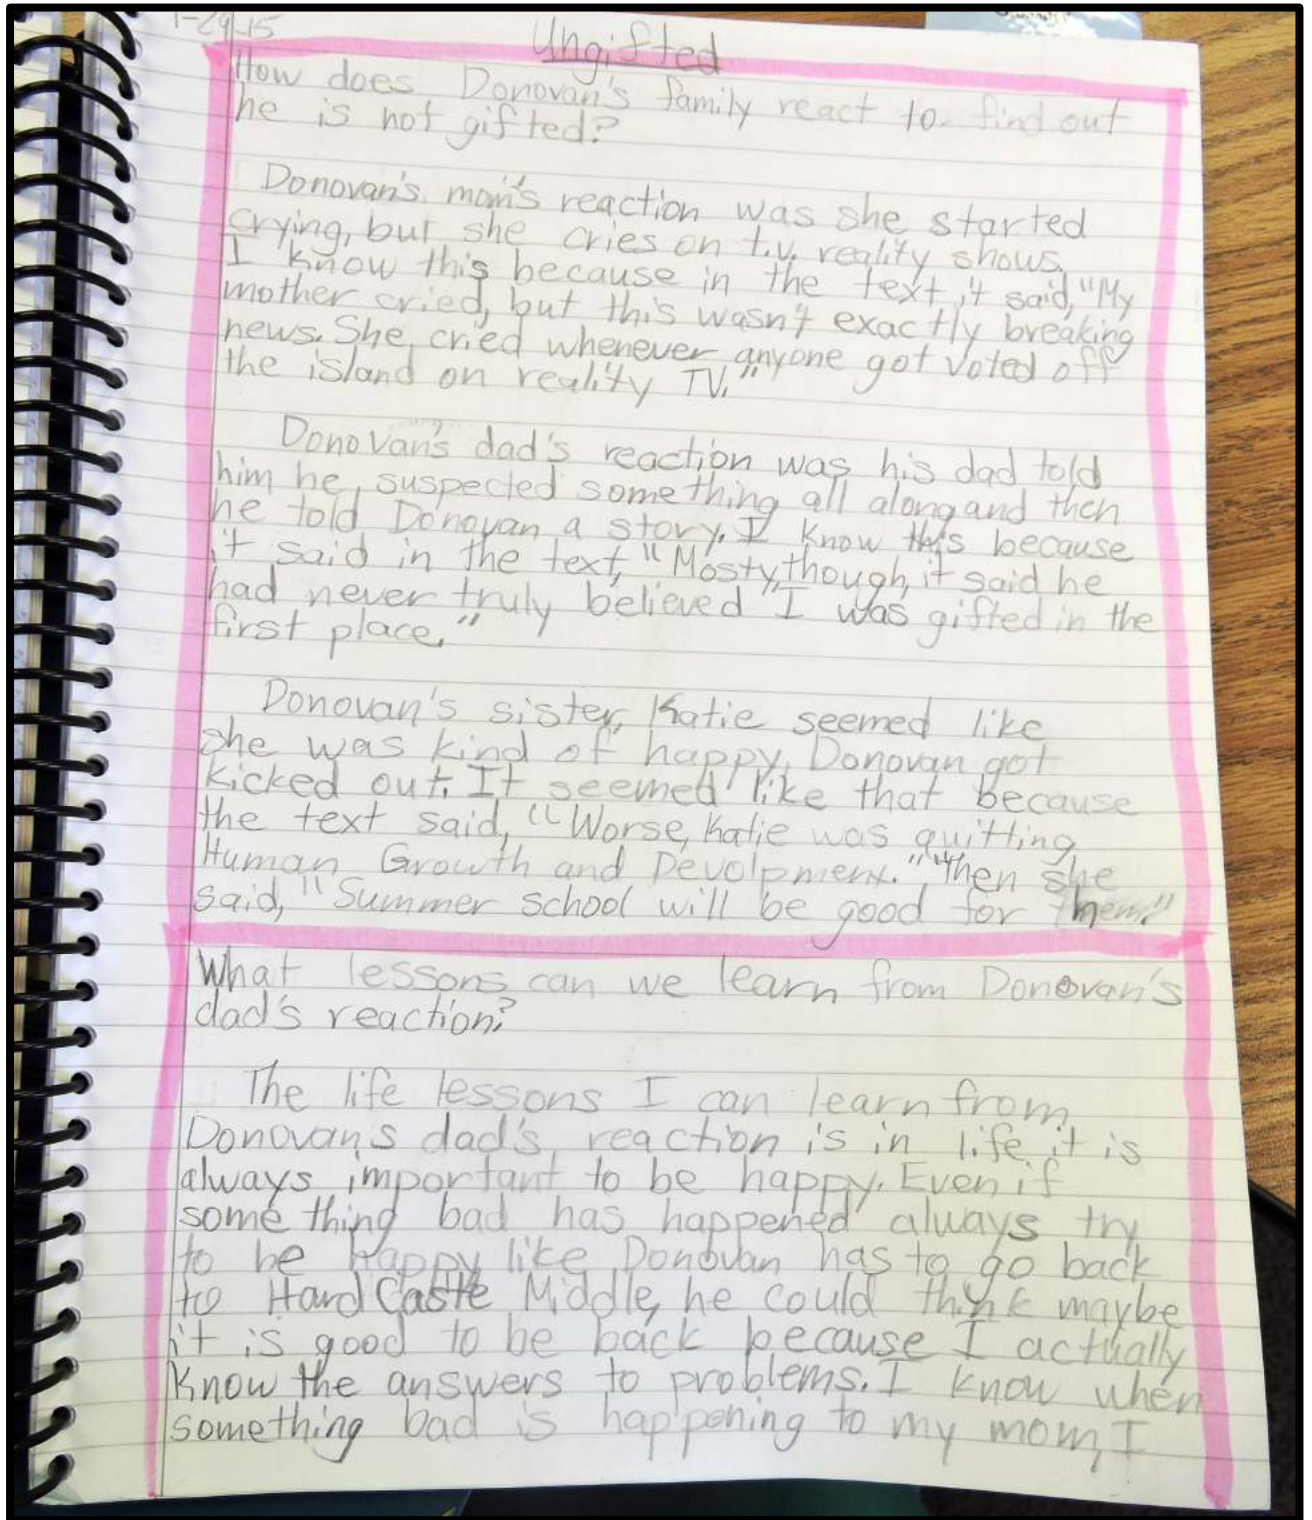 1-29-15
Ungifted
How does Donovan's family react to find out
he is not gifted?
Donovan's mom's reaction was she started
crying, but she cries on t.v. reality shows.
I know this because in the text it said, "My
mother cried, but this wasn't exactly breaking
news. She cried whenever anyone got voted off
the island on reality TV."
Donovan's dad's reaction was his dad told
him he suspected something all along and then
he told Donovan a story. I know this because
it said in the text, "Mosty, though, it said he
had never truly believed I was gifted in the
first place."
Donovan's sister, Katie seemed like
she was kind of happy, Donovan got
kicked out. It seemed like that because
the text said, "Worse, Katie was quitting
Human Growth and Devolpment." Then she
said, "Summer school will be good for them."
What lessons can we learn from Donovan's
dad's reaction?
The life lessons I can learn from
Donovan's dad's reaction is in life it is
always important to be happy. Even if
some thing bad has happened always try
to be happy like Donovan has to go back
to Hard Castle Middle, he could think maybe
it is good to be back because I actually
know the answers to problems. I know when
something bad is happening to my mom, I